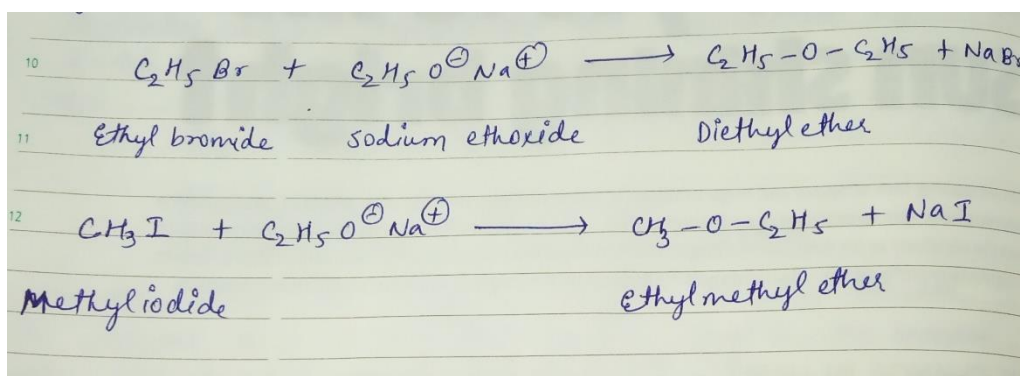 10 C₂H₅ Br + C₂H₅ O⊖ Na⊕ ⟶ C₂H₅ – O – C₂H₅ + NaBr
11 Ethyl bromide sodium ethoxide Diethyl ether
12 CH₃ I + C₂H₅ O⊖ Na⊕ ⟶ CH₃ – O – C₂H₅ + NaI
Methyl iodide Ethyl methyl ether